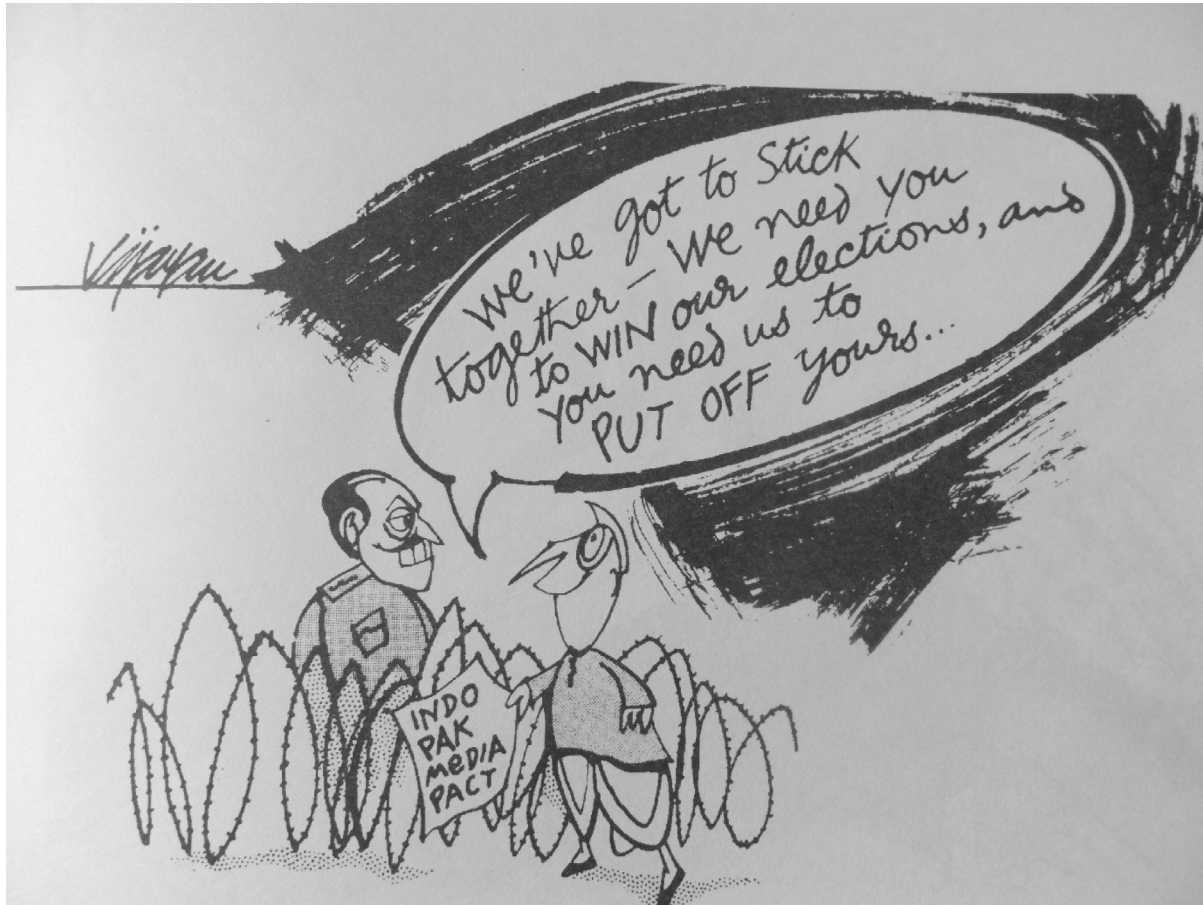 Vijayan
We've got to Stick
together – We need you
to WIN our elections, and
you need us to
PUT OFF yours...
INDO
PAK
MeDIA
PACT